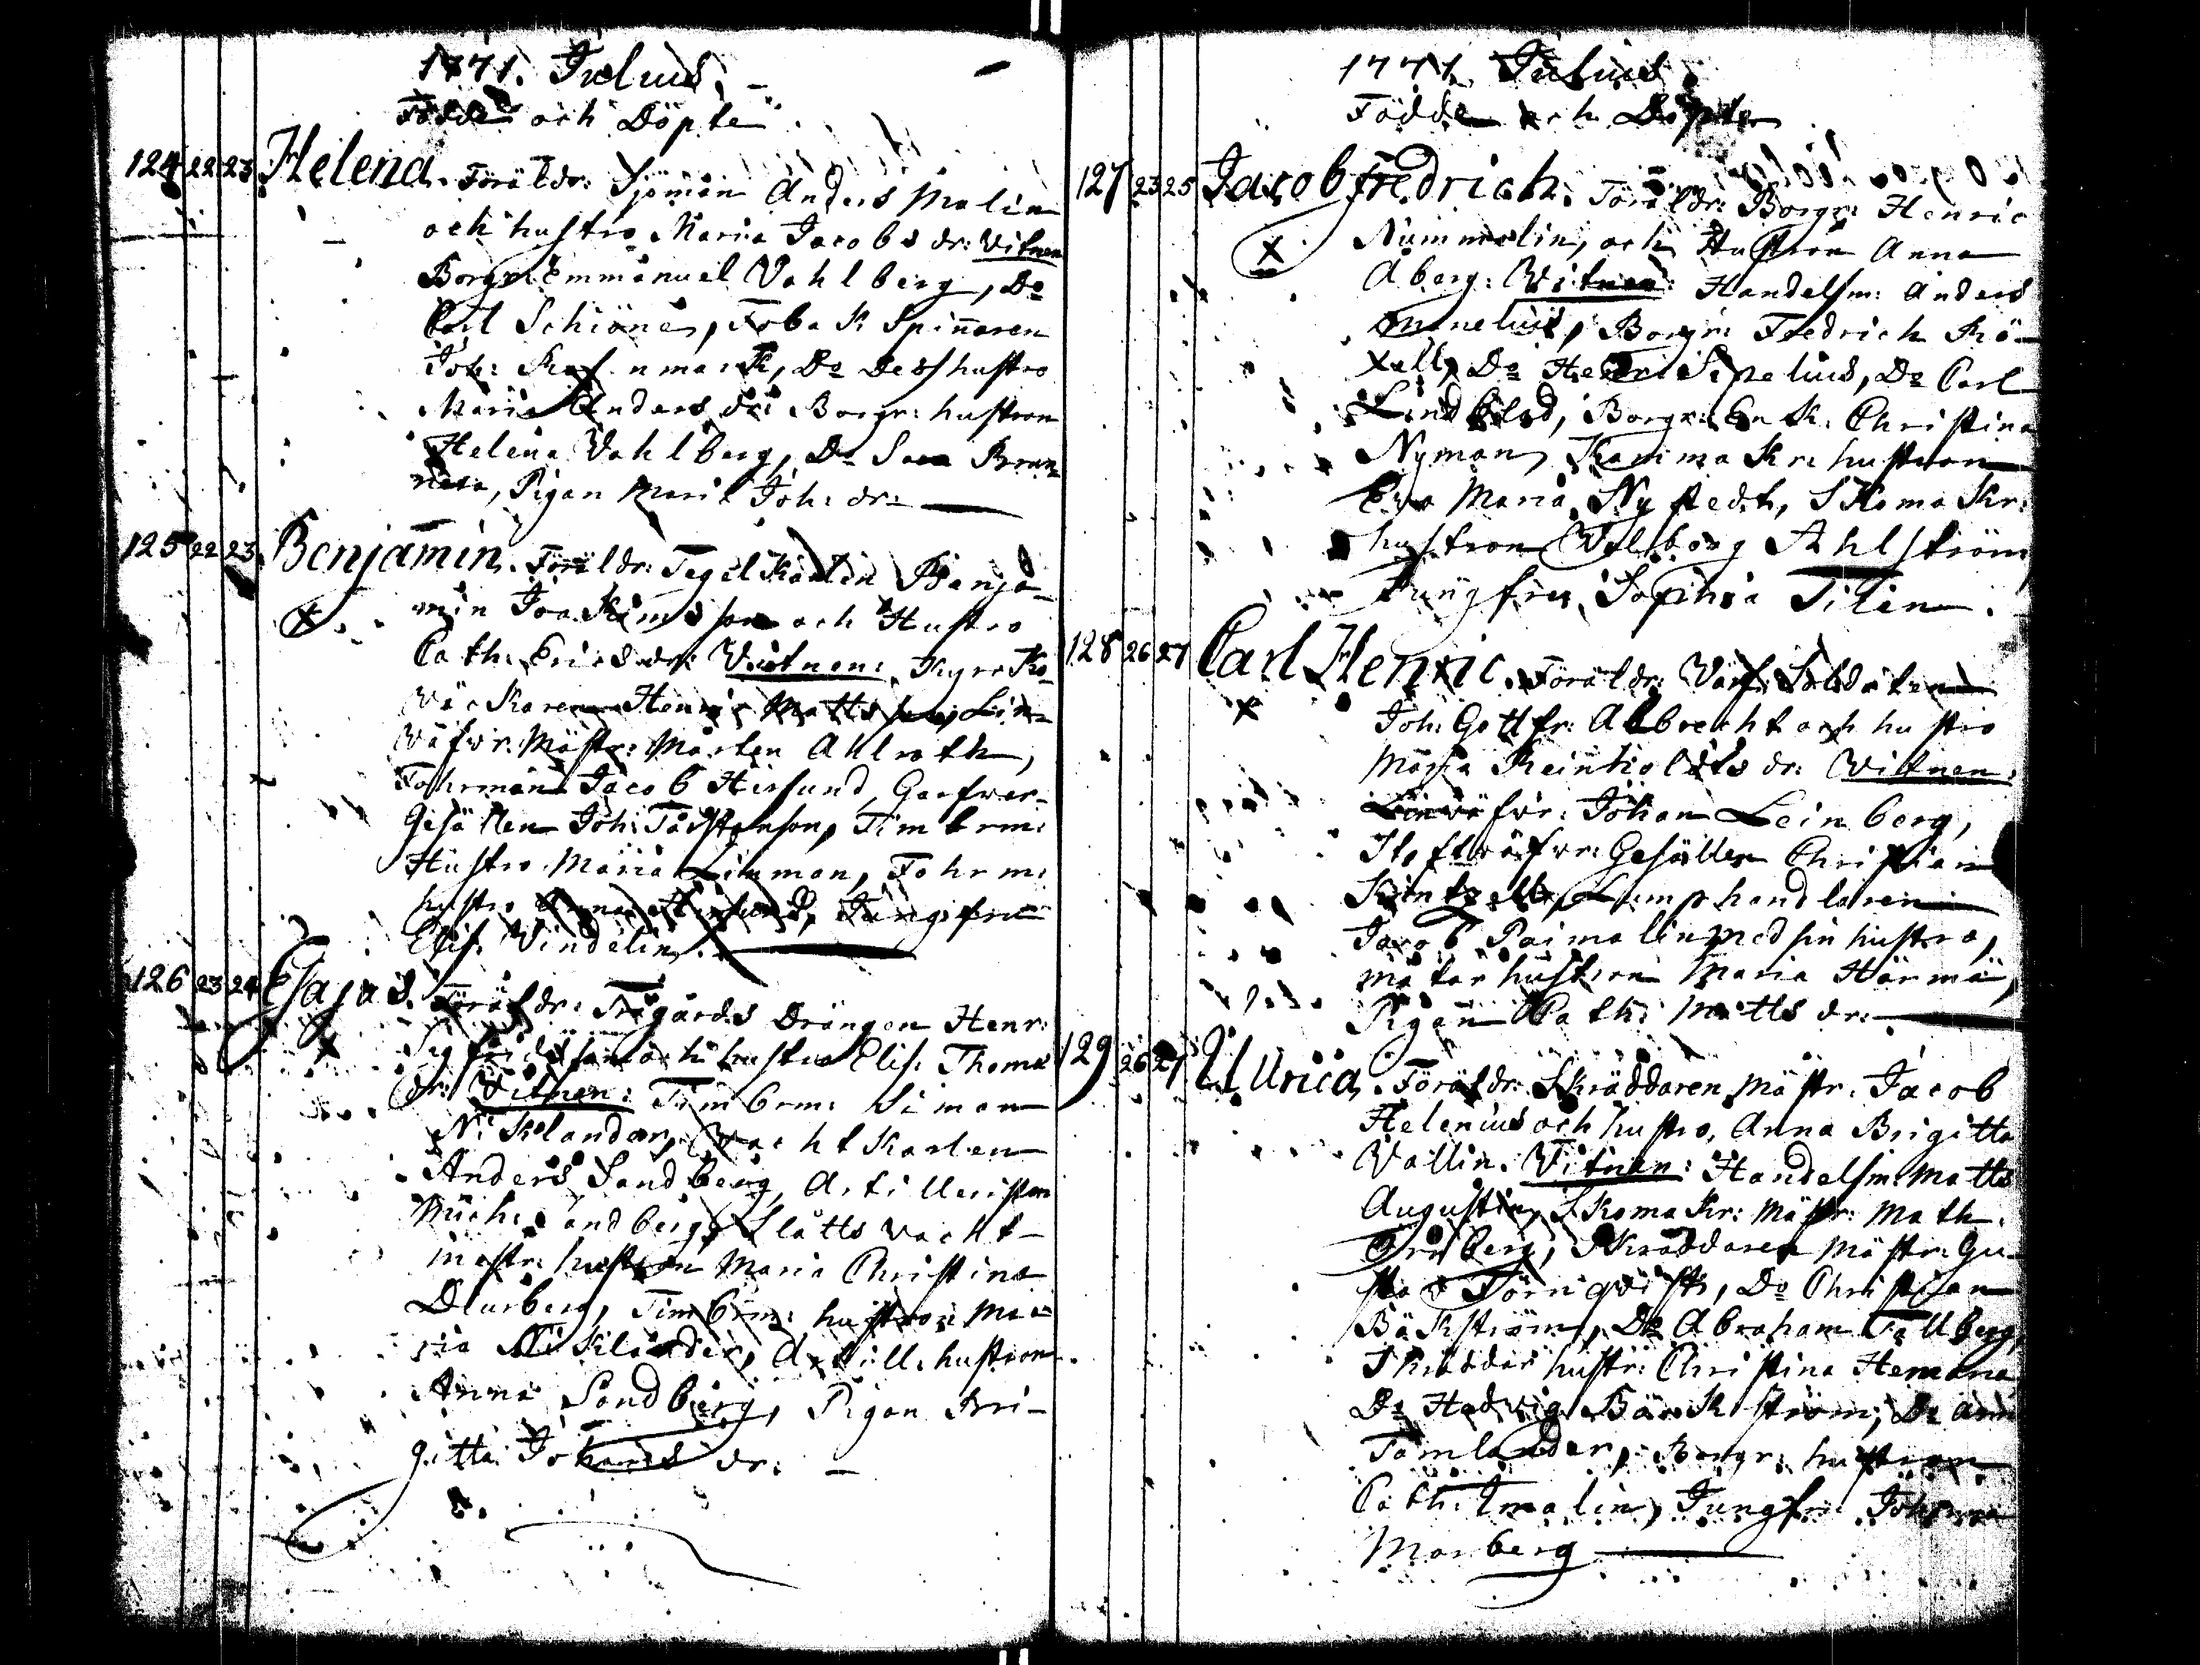 1771. Julius.
Födde och Döpte
124 22 23 Helena. Föräldr: Sjöman Anders Malin
och hustro Maria Jacobs dr: Vitnen
Borgr: Emmanuel Vahlberg, Do
Carl Schiöne, Tobak Spinnaren
Joh: , Do Dess hustro
Maria Anders dr: Borgr: hustron
Helena Vahlberg, Do
Pigan Maria Joh: dr:
125 22 23 Benjamin. Föräldr: Tegelkarlen Benja-
min Joakimsson och Hustro
Cath: Erics dr: Vitnen: Kyrko-
väckaren Henric Mattsson, Lin-
väfvr: Mästr: Mårten Ahlroth,
Fohrman Jacob Hirsund, Garfvar-
Gesällen Joh: Torstenson, Timbrm:
Hustro Maria Linman, Fohrm:
hustro Anna Hirsund, Jungfru
Elis: Vindelin.
126 23 24 Esajas. Föräldr: Trägårds Drängen Henr:
Sigfridsson och hustro Elis: Thomæ
dr: Vitnen: Timbrm: Simon
Niklander, Vachtkarlen
Anders Sandberg, Artilleristen
Mich: Sandberg, Slåtts vacht-
mästr: hustron Maria Christina
Durberg, Timbrm: hustron Ma-
ria Niklander, Artill: hustron
Anna Sandberg, Pigan Bri-
gitta Johans dr:
1771. Julius
Födde och Döpte
127 23 25 Jacob Fredrich. Föräldr: Borgr: Henric
Nummelin, och Hustron Anna
Åberg: Vitnen: Handelsm: Anders
, Borgr: Fredrich Kö-
xell, Do Henric Sipelius, Do Carl
Lindblad, Borgr: Enk: Christina
Nyman, Kammakr: hustron
Eva Maria Nystedt, Skomakr:
hustron Valborg Ahlström,
Jungfru Sophia Tilin.
128 26 27 Carl Henric. Föräldr: Värf: Soldaten
Joh: Gottfr: Albrecht och hustro
Maria Reinholdts dr: Vittnen:
Linväfvr: Johan Leinberg,
Stoftväfvr: Gesällen Christian
Kintzell, Lumphandlaren
Jacob Paimalin med sin hustro,
hustron Maria Härmä,
Pigan Cath: Matts dr:
129 26 27 Ulrica. Föräldr: Skräddaren Mästr: Jacob
Helenius och hustro, Anna Brigitta
Vallin. Vitnen: Handelsm: Matts
Augustin, Skomakr: Mästr: Math:
berg, Skräddaren Mästr: Gu-
stav Törnqvist, Do Christian
Bäkström, Do Abraham Fallberg,
Skräddar hustr: Christina
Do Hedvig Bäckström, Do Anna
Tamlander, Borgr: hustron
Cath: Imalin, Jungfr: Johanna
Marberg